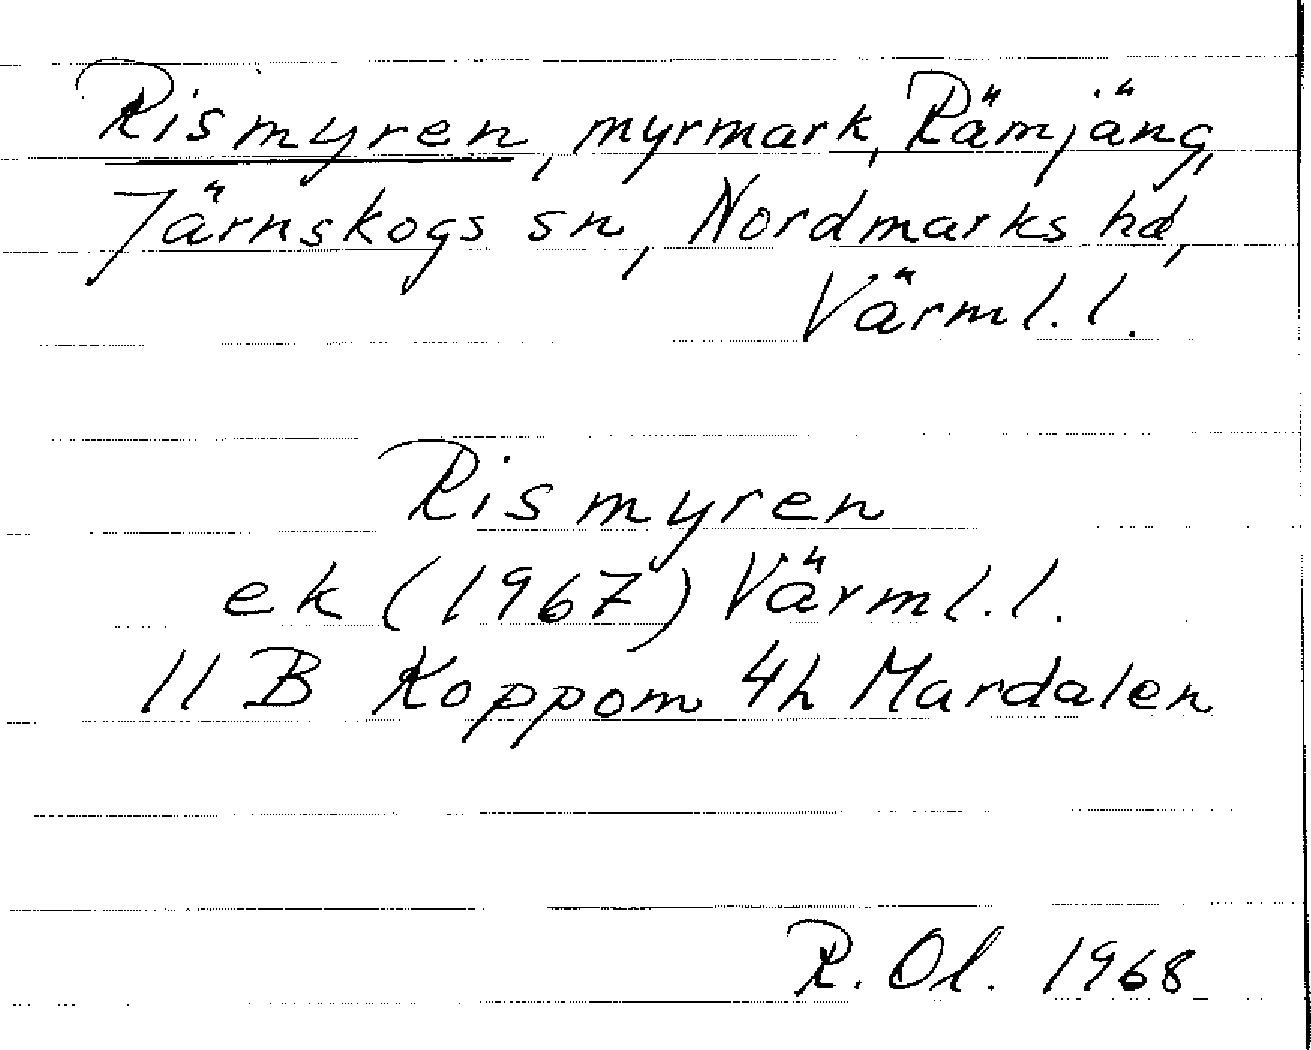 Rismyren, myrmark, Rämjäng,
Järnskogs sn, Nordmarks hd,
Värml. l.
Rismyren
ek (1967) Värml. l.
11 B Koppom 4h Mardalen
R. Ol. 1968